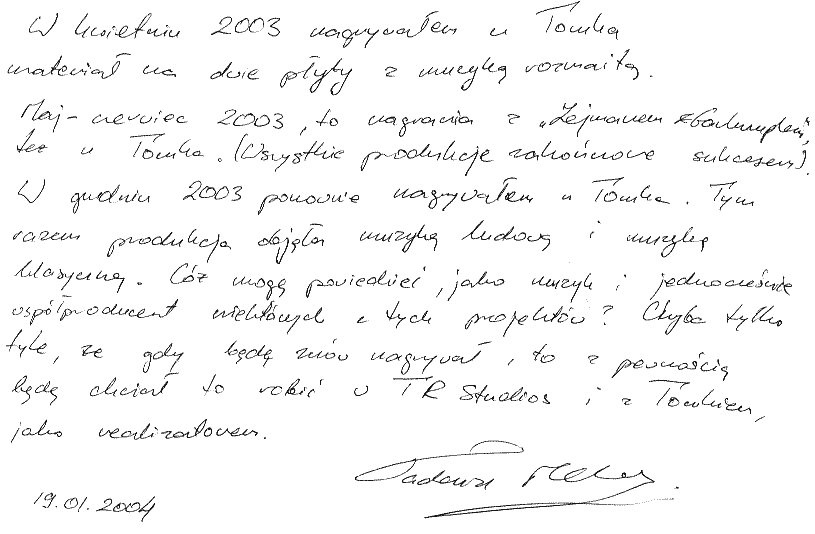 W kwietniu 2003 nagrywałem u Tomka
materiał na dwie płyty z muzyką rozmaitą.
Maj-czerwiec 2003, to nagrania z „Zejmanem i Garkumplem",
też u Tomka. (Wszystkie produkcje zakończone sukcesem).
W grudniu 2003 ponownie nagrywałem u Tomka. Tym
razem produkcja objęła muzykę ludową i muzykę
klasyczną. Cóż mogę powiedzieć, jako muzyk i jednocześnie
współproducent niektórych z tych projektów? Chyba tylko
tyle, że gdy będę znów nagrywał, to z pewnością
będę chciał to robić w TR Studios i z Tomkiem,
jako realizatorem.
Tadeusz
19.01.2004